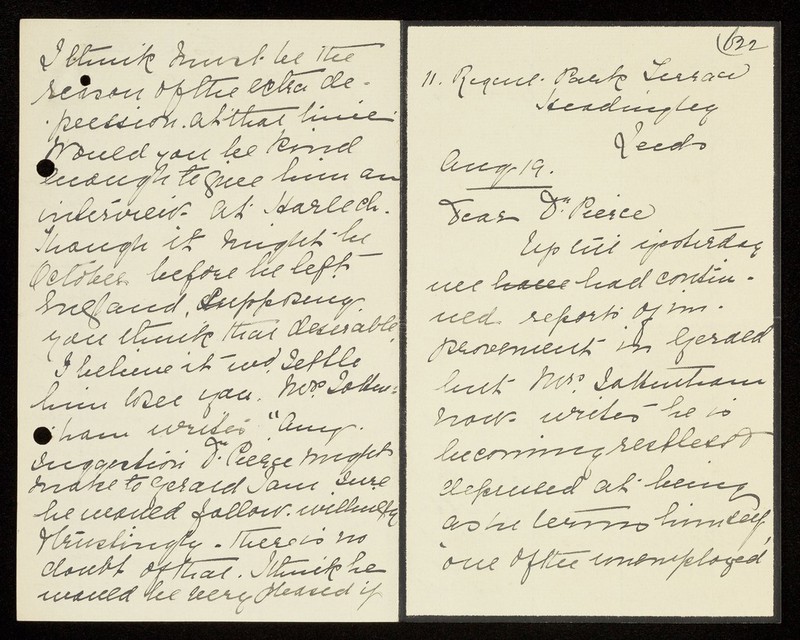 I think must be the
reason of the extra de-
pression at that time
Would you be kind
enough to give him an
interview at Harlech.
Though it might be
October before he left
England, supposing
you think that desirable
I believe it wd. settle
him to see you. Mrs. Totten-
ham writes "Any
suggestion Dr. Pierce might
make to Gerald I am sure
he would follow willingly
& trustingly - there is no
doubt of that. I think he
would be very pleased if
622
11. Regent Park Terrace
Headingley
Leeds
Aug 19.
Dear Dr. Pierce
Up till yesterday
we have had contin-
ued reports of im-
provement in Gerald
but Mrs. Tottenham
now writes he is
becoming restless &
depressed at being
as he terms himself
'one of the unemployed'